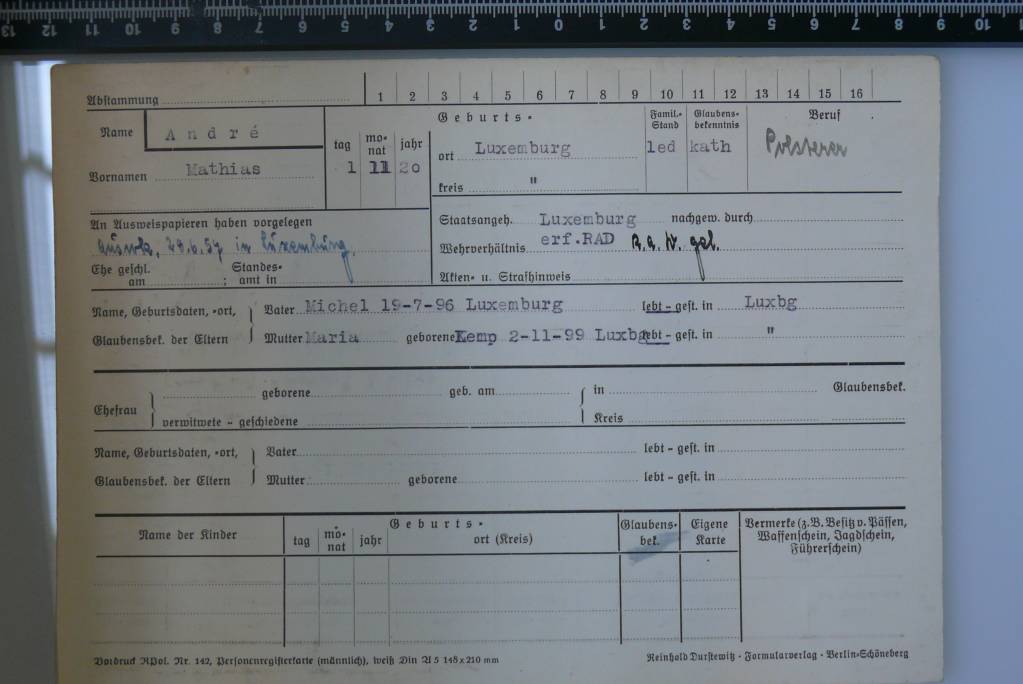 13 12 11 10 9 8 7 6 5 4 3 2 1 0 1 2 3 4 5 6 7 8 9 10
Abstammung 1 2 3 4 5 6 7 8 9 10 11 12 13 14 15 16
Name André
Vornamen Mathias
tag monat jahr
1 11 20
Geburts-
ort Luxemburg
kreis "
Famil.-Stand
led
Glaubens-bekenntnis
kath
Beruf
Polsterer
An Ausweispapieren haben vorgelegen
in Luxemburg.
Ehe geschl. am ; Standes-amt in
Staatsangeh. Luxemburg nachgew. durch
Wehrverhältnis erf.RAD R.a.W. gel.
Akten- u. Strafhinweis
Name, Geburtsdaten, -ort, Vater Michel 19-7-96 Luxemburg lebt - gest. in Luxbg
Glaubensbek. der Eltern Mutter Maria geborene Kemp 2-11-99 Luxbg lebt - gest. in "
Ehefrau geborene geb. am in Glaubensbek.
verwitwete - geschiedene Kreis
Name, Geburtsdaten, -ort, Vater lebt - gest. in
Glaubensbek. der Eltern Mutter geborene lebt - gest. in
Name der Kinder
tag monat jahr
Geburts-
ort (Kreis)
Glaubens-bek.
Eigene Karte
Vermerke (z.B. Besitz v. Pässen,
Waffenschein, Jagdschein,
Führerschein)
Vordruck RPol. Nr. 142, Personenregisterkarte (männlich), weiß Din A 5 148 x 210 mm
Reinhold Durstewitz - Formularverlag - Berlin-Schöneberg